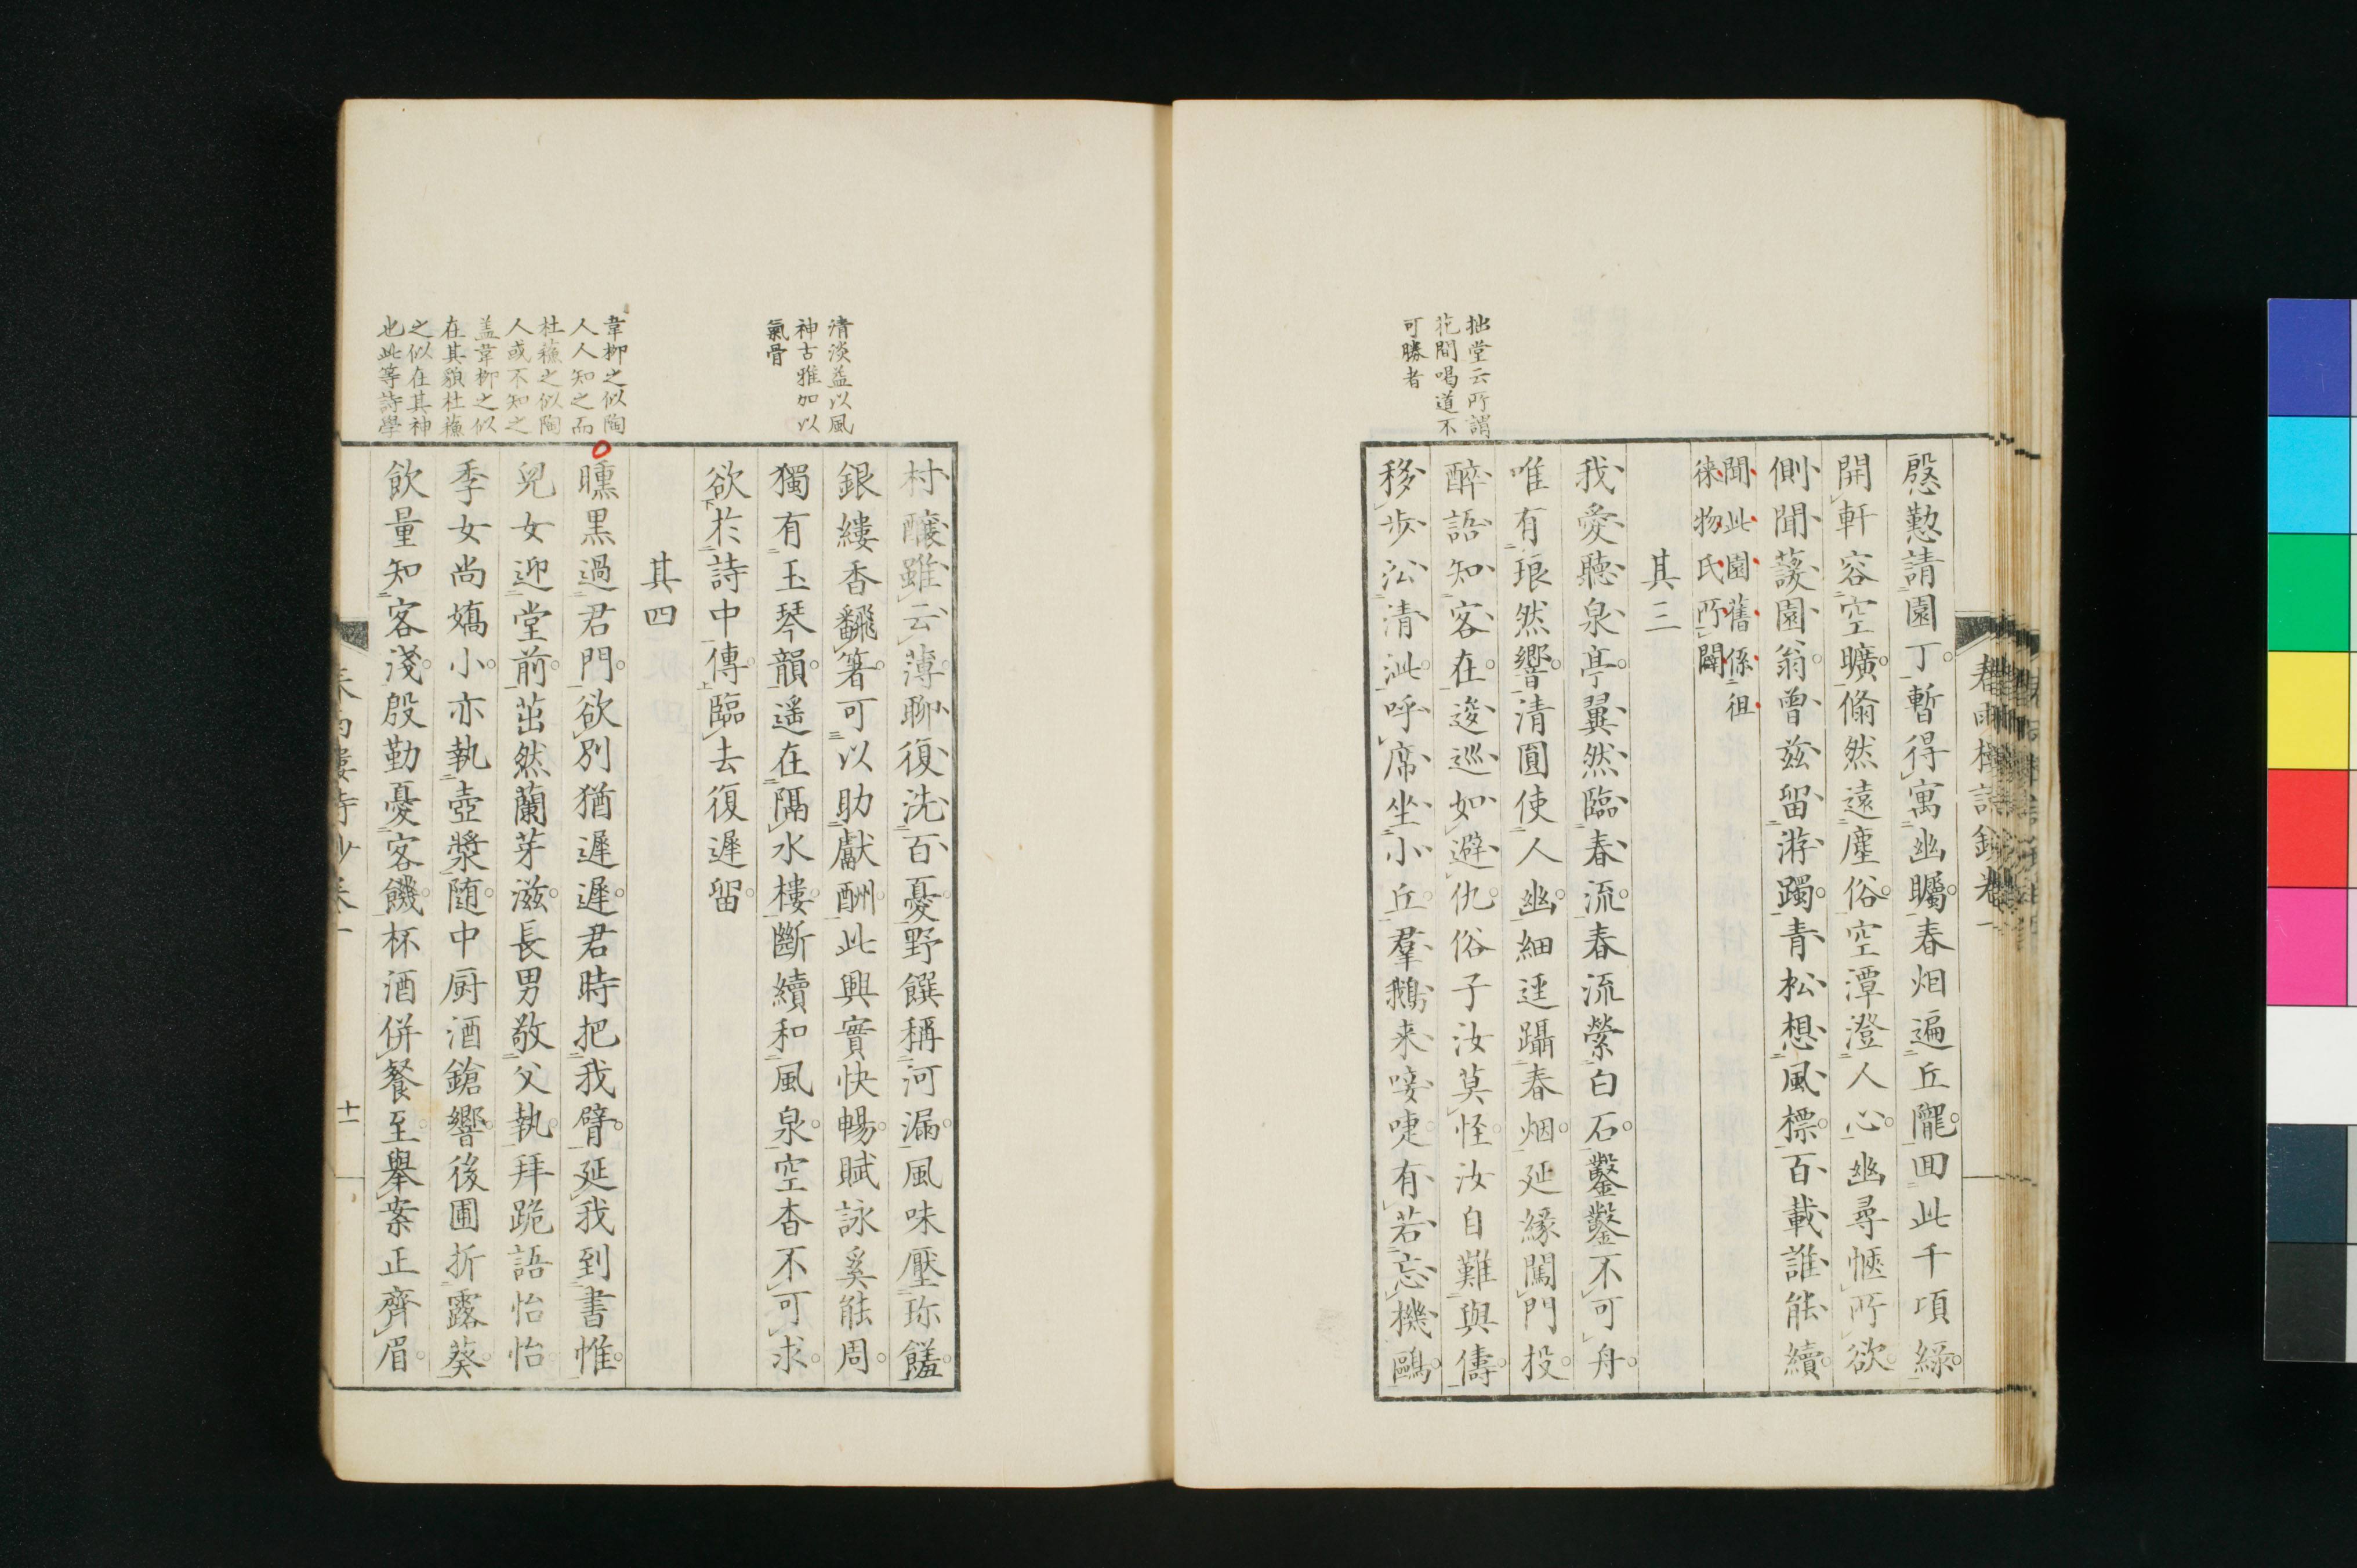 慇懃請園丁暫得寓幽矚春烟遍丘隴囬此千項綠
開軒容空曠翛然遠塵俗空潭澄人心幽尋愜所欲
側聞蔆園翁曽玆留游躅青松想風標百載誰能續
聞此園舊係徂
徠物氏所闢
其三
我愛聽泉亭翼然臨春流春流縈白石鑿鑿不可舟
唯有琅然響清圓使人幽細逕躡春烟延緣闖門投
醉語知客在逡巡如避仇俗子汝莫怪汝自難與儔
移步沿清沚呼席坐小丘羣鵝来唼唼有若忘機鷗
拙堂云所謂
花間喝道不
可勝者
春雨樓詩鈔卷一
村釀雖云薄聊復洗百憂野饌稱河漏風味壓珎饈
銀縷香翻箸可以助獻酬此興實快暢賦詠奚能周
獨有玉琴韻遥在隔水樓斷續和風泉空杳不可求
欲於詩中傳臨去復遲留
其四
曛黒過君門欲別猶遲遲君時把我臂延我到書帷
兒女迎堂前茁然蘭芽滋長男敬父執拜跪語怡怡
季女尚嬌小亦執壺漿随中厨酒鎗響後圃折露葵
飲量知客淺殷勤憂客饑杯酒併餐至舉案正齊眉
清淡益以風
神古雅加以
氣骨
韋柳之似陶
人人知之而
杜蘓之似陶
人或不知之
盖韋柳之似
在其貌杜蘓
之似在其神
也此等詩學
十一